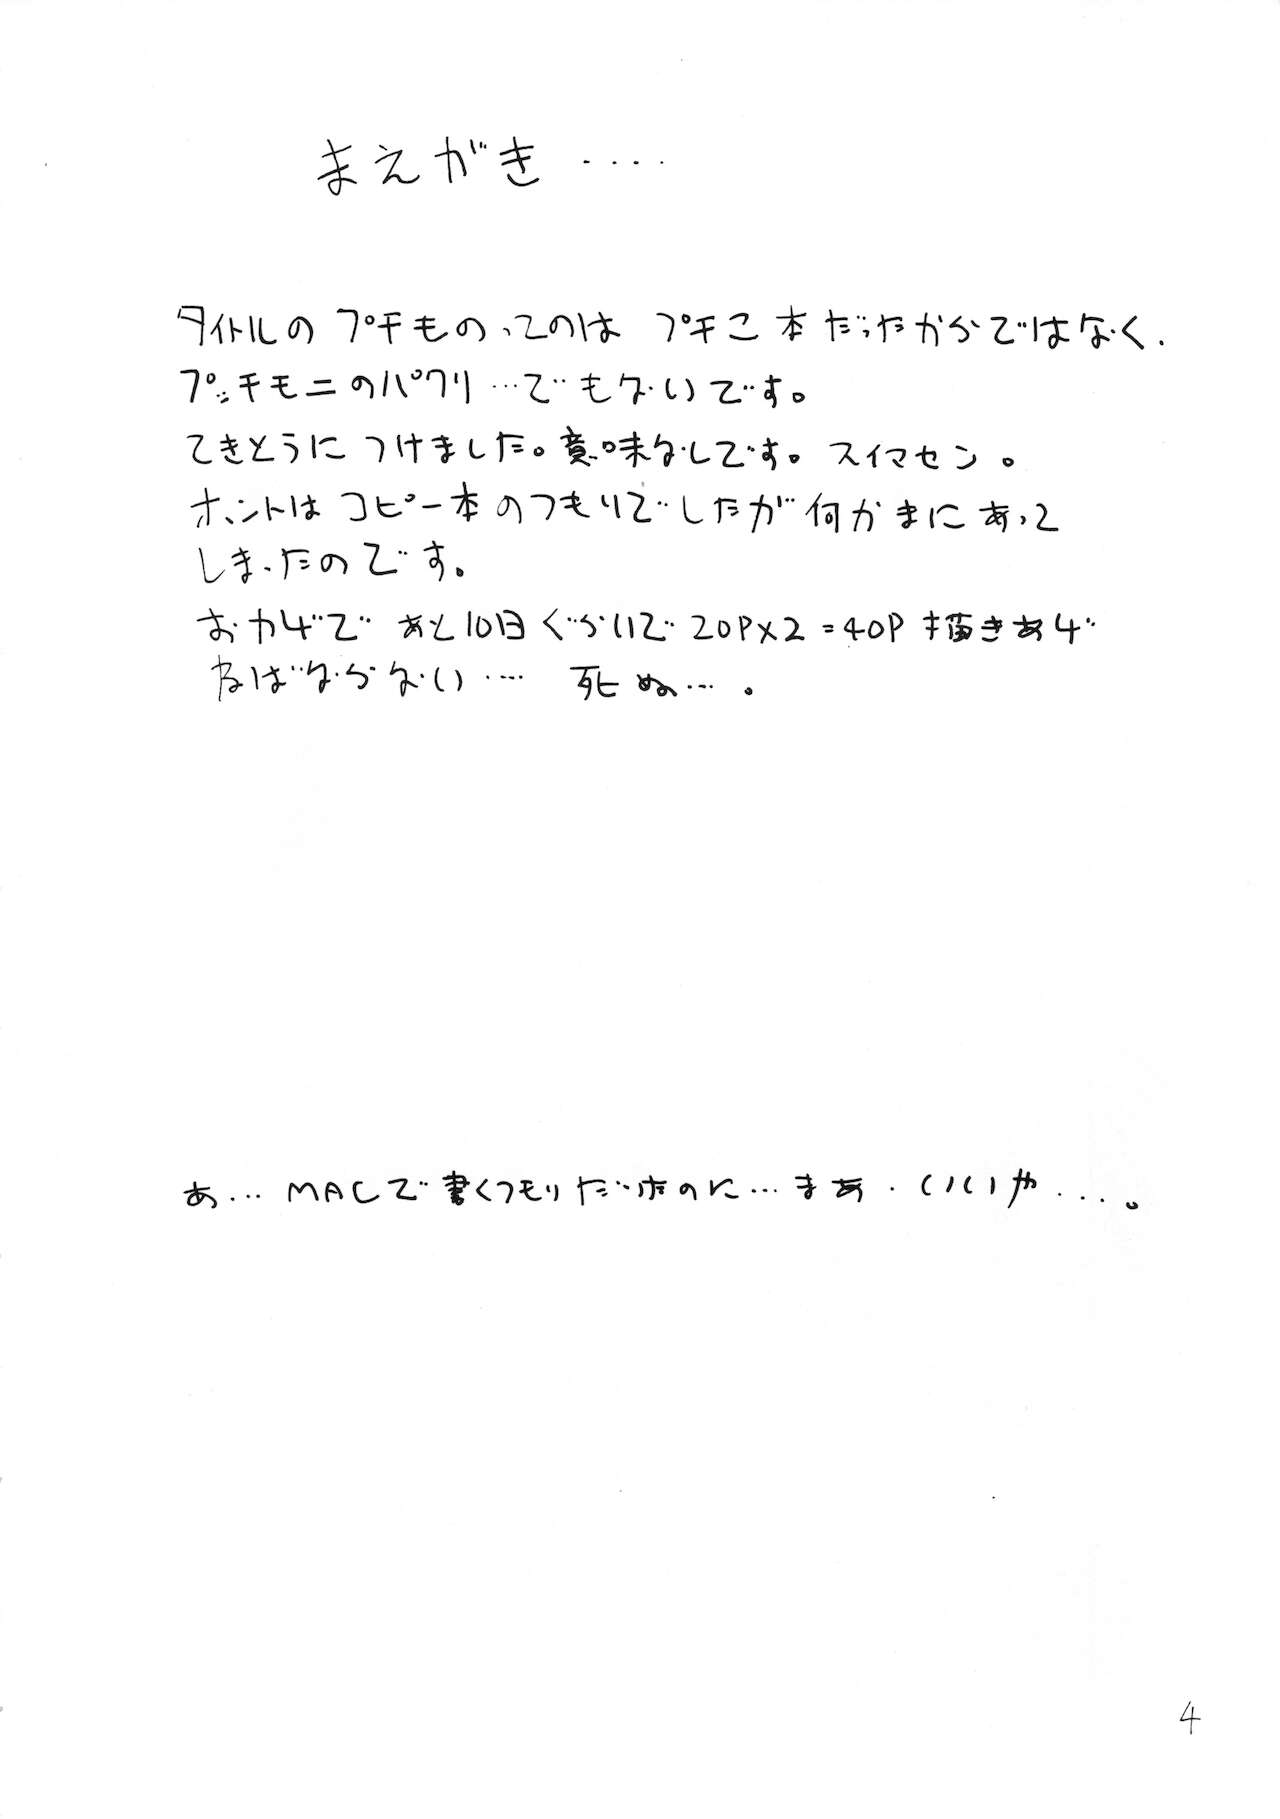 まえがき‥‥
タイトルの プチものってのは プチこ本だったからではなく、
プッチモニのパクリ…でもないです。
てきとうに つけました。意味なしです。スイマセン。
ホントはコピー本のつもりでしたが何かまにあって
しまったのです。
おかげで あと10日ぐらいで20P×2=40P描きあげ
ねばならない‥‥ 死ぬ…。
あ…MACで書くつもりだったのに…まあ・いいや‥‥。
4